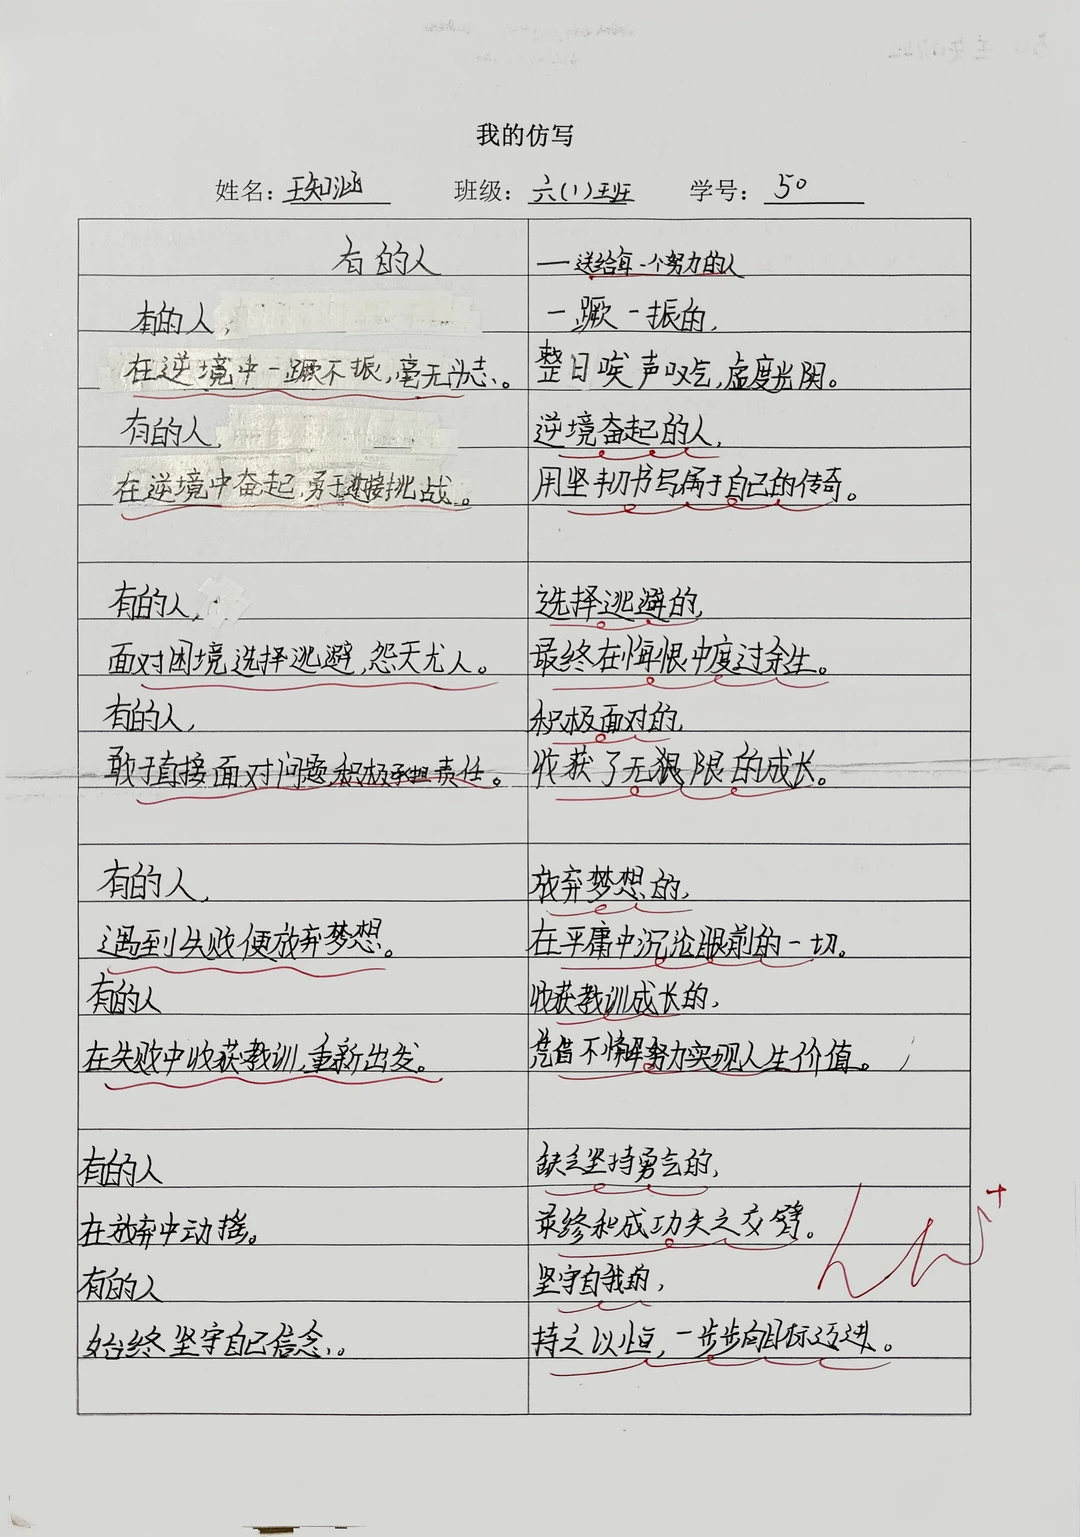 我的仿写
姓名：王知涵 班级：六(1)班 学号：50
有的人
——送给每一个努力的人
有的人，
在逆境中一蹶不振，毫无斗志。
有的人，
在逆境中奋起，勇于迎接挑战。
有的人，
面对困境选择逃避，怨天尤人。
有的人，
敢于直接面对问题积极承担责任。
有的人，
遇到失败便放弃梦想。
有的人
在失败中收获教训，重新出发。
有的人
在放弃中动摇。
有的人
始终坚守自己信念。
一蹶一振的，
整日唉声叹气，虚度光阴。
逆境奋起的人，
用坚韧书写属于自己的传奇。
选择逃避的，
最终在悔恨中度过余生。
积极面对的，
收获了无限的成长。
放弃梦想的，
在平庸中沉沦眼前的一切。
收获教训成长的，
凭借不懈努力实现人生价值。
缺乏坚持勇气的，
最终和成功失之交臂。
坚守自我的，
持之以恒，一步步向目标迈进。